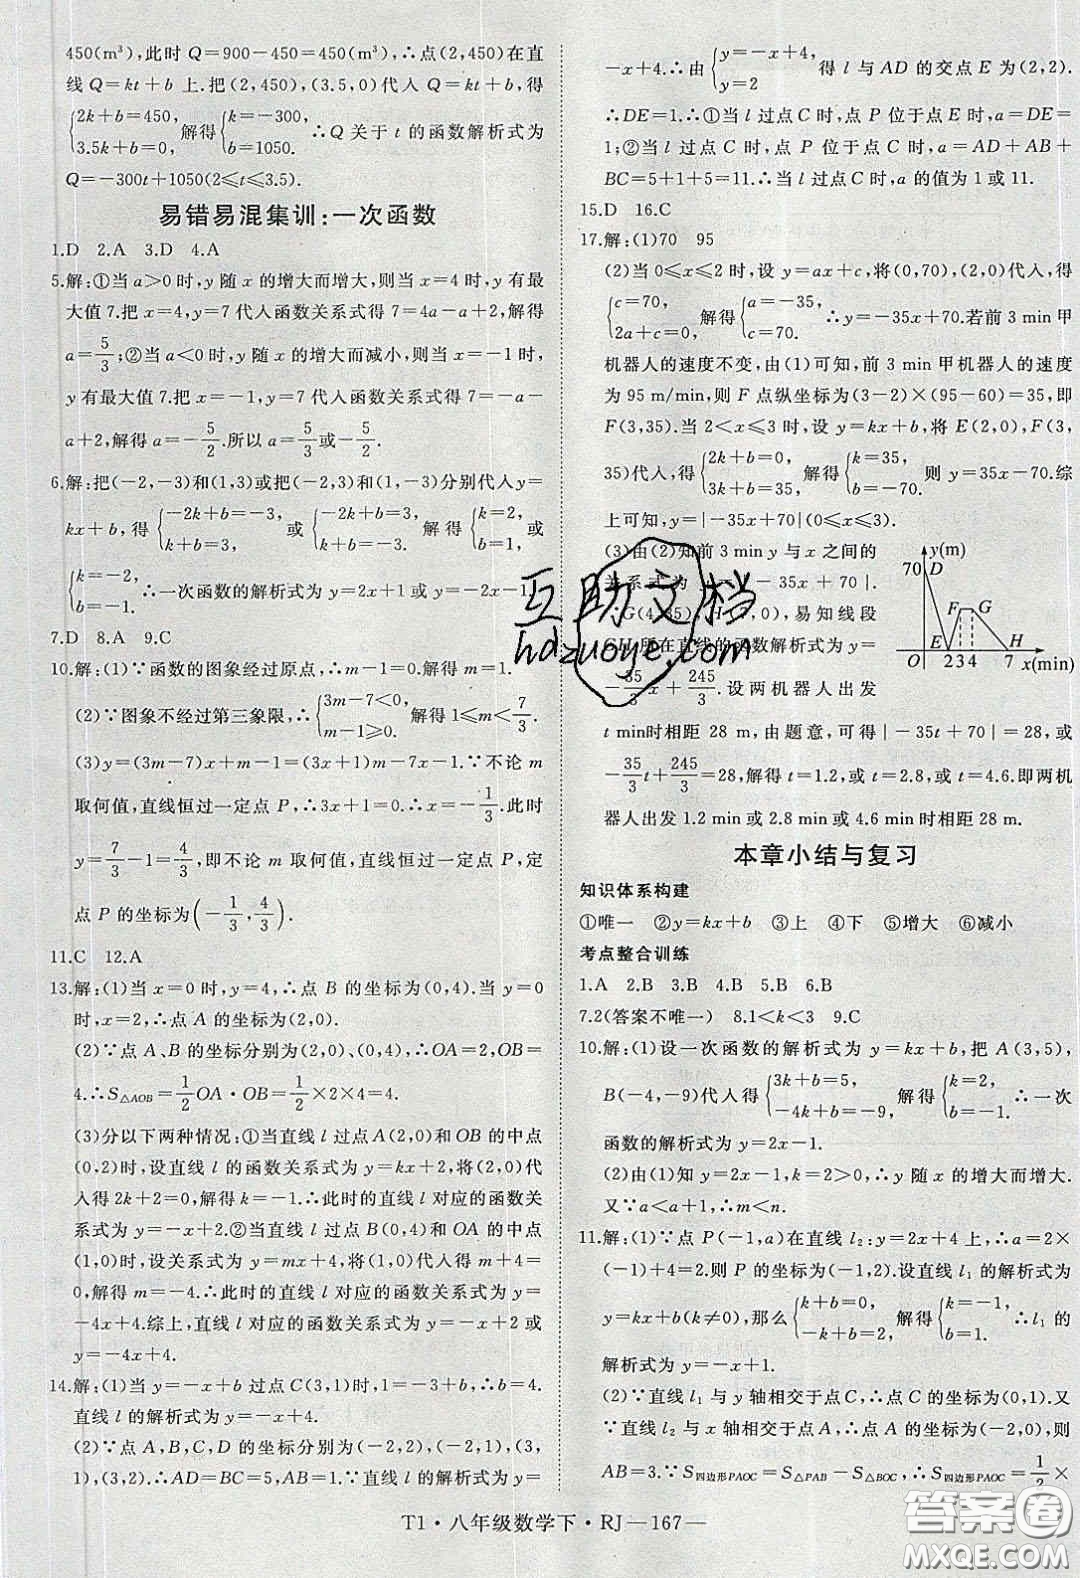 450(m³),此时 Q=900-450=450(m³),∴点(2,450)在直
线 Q=kt+b 上.把(2,450),(3.5,0)代入 Q=kt+b,得
{2k+b=450, 3.5k+b=0, 解得 {k=-300, b=1050. ∴Q 关于 t 的函数解析式为
Q=-300t+1050(2⩽t⩽3.5).
易错易混集训:一次函数
1.D 2.A 3.D 4.A
5.解:①当 a>0时,y 随 x 的增大而增大,则当 x=4 时,y有最
大值7.把x=4,y=7代入函数关系式得7=4a-a+2,解得
a=5/3;②当 a<0时,y 随 x 的增大而减小,则当 x=-1 时,
y有最大值7.把x=-1,y=7代入函数关系式得 7=-a-
a+2,解得 a=-5/2.所以 a=5/3或-5/2.
6.解:把(-2,-3)和(1,3)或把(-2,3)和(1,-3)分别代入y=
kx+b,得 {-2k+b=-3, k+b=3 或 {-2k+b=3, k+b=-3, 解得 {k=2, b=1 或
{k=-2, b=-1. ∴一次函数的解析式为 y=2x+1或y=-2x-1.
7.D 8.A 9.C
10.解:(1)∵函数的图象经过原点,∴m-1=0,解得 m=1.
(2)∵图象不经过第三象限,∴{3m-7<0, m-1⩾0. 解得 1⩽m<7/3.
(3)y=(3m-7)x+m-1=(3x+1)m-7x-1.∵不论 m
取何值,直线恒过一定点 P,∴3x+1=0.∴x=-1/3.此时
y=7/3-1=4/3,即不论 m 取何值,直线恒过一定点 P,定
点 P 的坐标为(-1/3,4/3).
11.C 12.A
13.解:(1)当 x=0 时,y=4,∴点 B 的坐标为(0,4).当 y=0
时,x=2,∴点 A 的坐标为(2,0).
(2)∵点 A、B 的坐标分别为(2,0)、(0,4),∴OA=2,OB=
4.∴S△AOB=1/2OA·OB=1/2×2×4=4.
(3)分以下两种情况:①当直线 l 过点A(2,0)和 OB 的中点
(0,2)时,设直线 l 的函数关系式为 y=kx+2,将(2,0)代
入得 2k+2=0,解得 k=-1.∴此时的直线 l 对应的函数关
系式为 y=-x+2.②当直线 l 过点 B(0,4)和 OA 的中点
(1,0)时,设关系式为 y=mx+4,将(1,0)代入得 m+4=
0,解得 m=-4.∴此时的直线 l 对应的函数关系式为 y=
-4x+4.综上,直线l对应的函数关系式为 y=-x+2 或
y=-4x+4.
14.解:(1)当 y=-x+b 过点C(3,1)时,1=-3+b,∴b=4.
直线 l 的解析式为 y=-x+4.
(2)∵点 A,B,C,D 的坐标分别为(-2,2),(-2,1),(3,
1),(3,2).∴AD=BC=5,AB=1.∵直线 l 的解析式为 y=
-x+4.∴由 {y=-x+4, y=2 得 l 与 AD 的交点 E 为(2,2).
∴DE=1.∴①当 l 过点C时,点 P 位于点E时,a=DE=
1;②当 l 过点 C 时,点 P 位于点 C 时,a=AD+AB+
BC=5+1+5=11.∴当 l 过点C时,a的值为1或11.
15.D 16.C
17.解:(1)70 95
(2)当 0⩽x⩽2 时,设 y=ax+c,将(0,70),(2,0)代入,得
{c=70, 2a+c=0, 解得 {a=-35, c=70. ∴y=-35x+70.若前 3 min 甲
机器人的速度不变,由(1)可知,前 3 min甲机器人的速度
为 95 m/min,则 F 点纵坐标为(3-2)×(95-60)=35,即
F(3,35).当 2<x⩽3 时,设 y=kx+b,将 E(2,0),F(3,
35)代入,得 {2k+b=0, 3k+b=35, 解得 {k=35, b=-70. 则 y=35x-70.综
上可知,y=|-35x+70|(0⩽x⩽3).
(3)由(2)知前 3 min y 与 x 之间的
关系式为 y=|-35x+70|.
∵G(4,35),H(7,0),易知线段
GH 所在直线的函数解析式为 y=
-35/3x+245/3.设两机器人出发
t min时相距 28 m,由题意,可得|-35t+70|=28,或
-35/3t+245/3=28,解得 t=1.2,或 t=2.8,或 t=4.6.即两机
器人出发 1.2 min 或 2.8 min,或 4.6 min时相距 28 m.
y(m)
70 D
F G
E H
O 2 3 4 7 x(min)
本章小结与复习
知识体系构建
①唯一 ②y=kx+b ③上 ④下 ⑤增大 ⑥减小
考点整合训练
1.A 2.B 3.B 4.B 5.B 6.B
7.2(答案不唯一) 8.1<k<3 9.C
10.解:(1)设一次函数的解析式为 y=kx+b,把 A(3,5),
B(-4,-9)代入得 {3k+b=5, -4k+b=-9, 解得 {k=2, b=-1. ∴一次
函数的解析式为 y=2x-1.
(2)由(1)知 y=2x-1,k=2>0,∴y 随 x 的增大而增大.
又∵a<a+1,∴m<n.
11.解:(1)∵点 P(-1,a)在直线 l₂:y=2x+4 上,∴a=2×
(-1)+4=2.则 P 的坐标为(-1,2).设直线 l₁ 的解析式为
y=kx+b(k≠0),那么 {k+b=0, -k+b=2. 解得 {k=-1, b=1. ∴l₁ 的
解析式为 y=-x+1.
(2)∵直线 l₁ 与 y 轴相交于点C,∴点C的坐标为(0,1).又
∵直线 l₂ 与 x 轴相交于点 A,∴点 A 的坐标为(-2,0),则
AB=3.∵S四边形PAOC=S△PAB-S△BOC,∴S四边形PAOC=1/2×
T1·八年级数学下·RJ—167—
互助文档
hdzuoye.com
答案圈
MXQE.COM